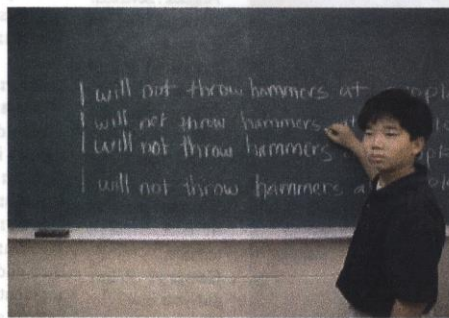 I will not throw hammers at people
I will not throw hammers
I will not throw hammers
I will not throw hammers